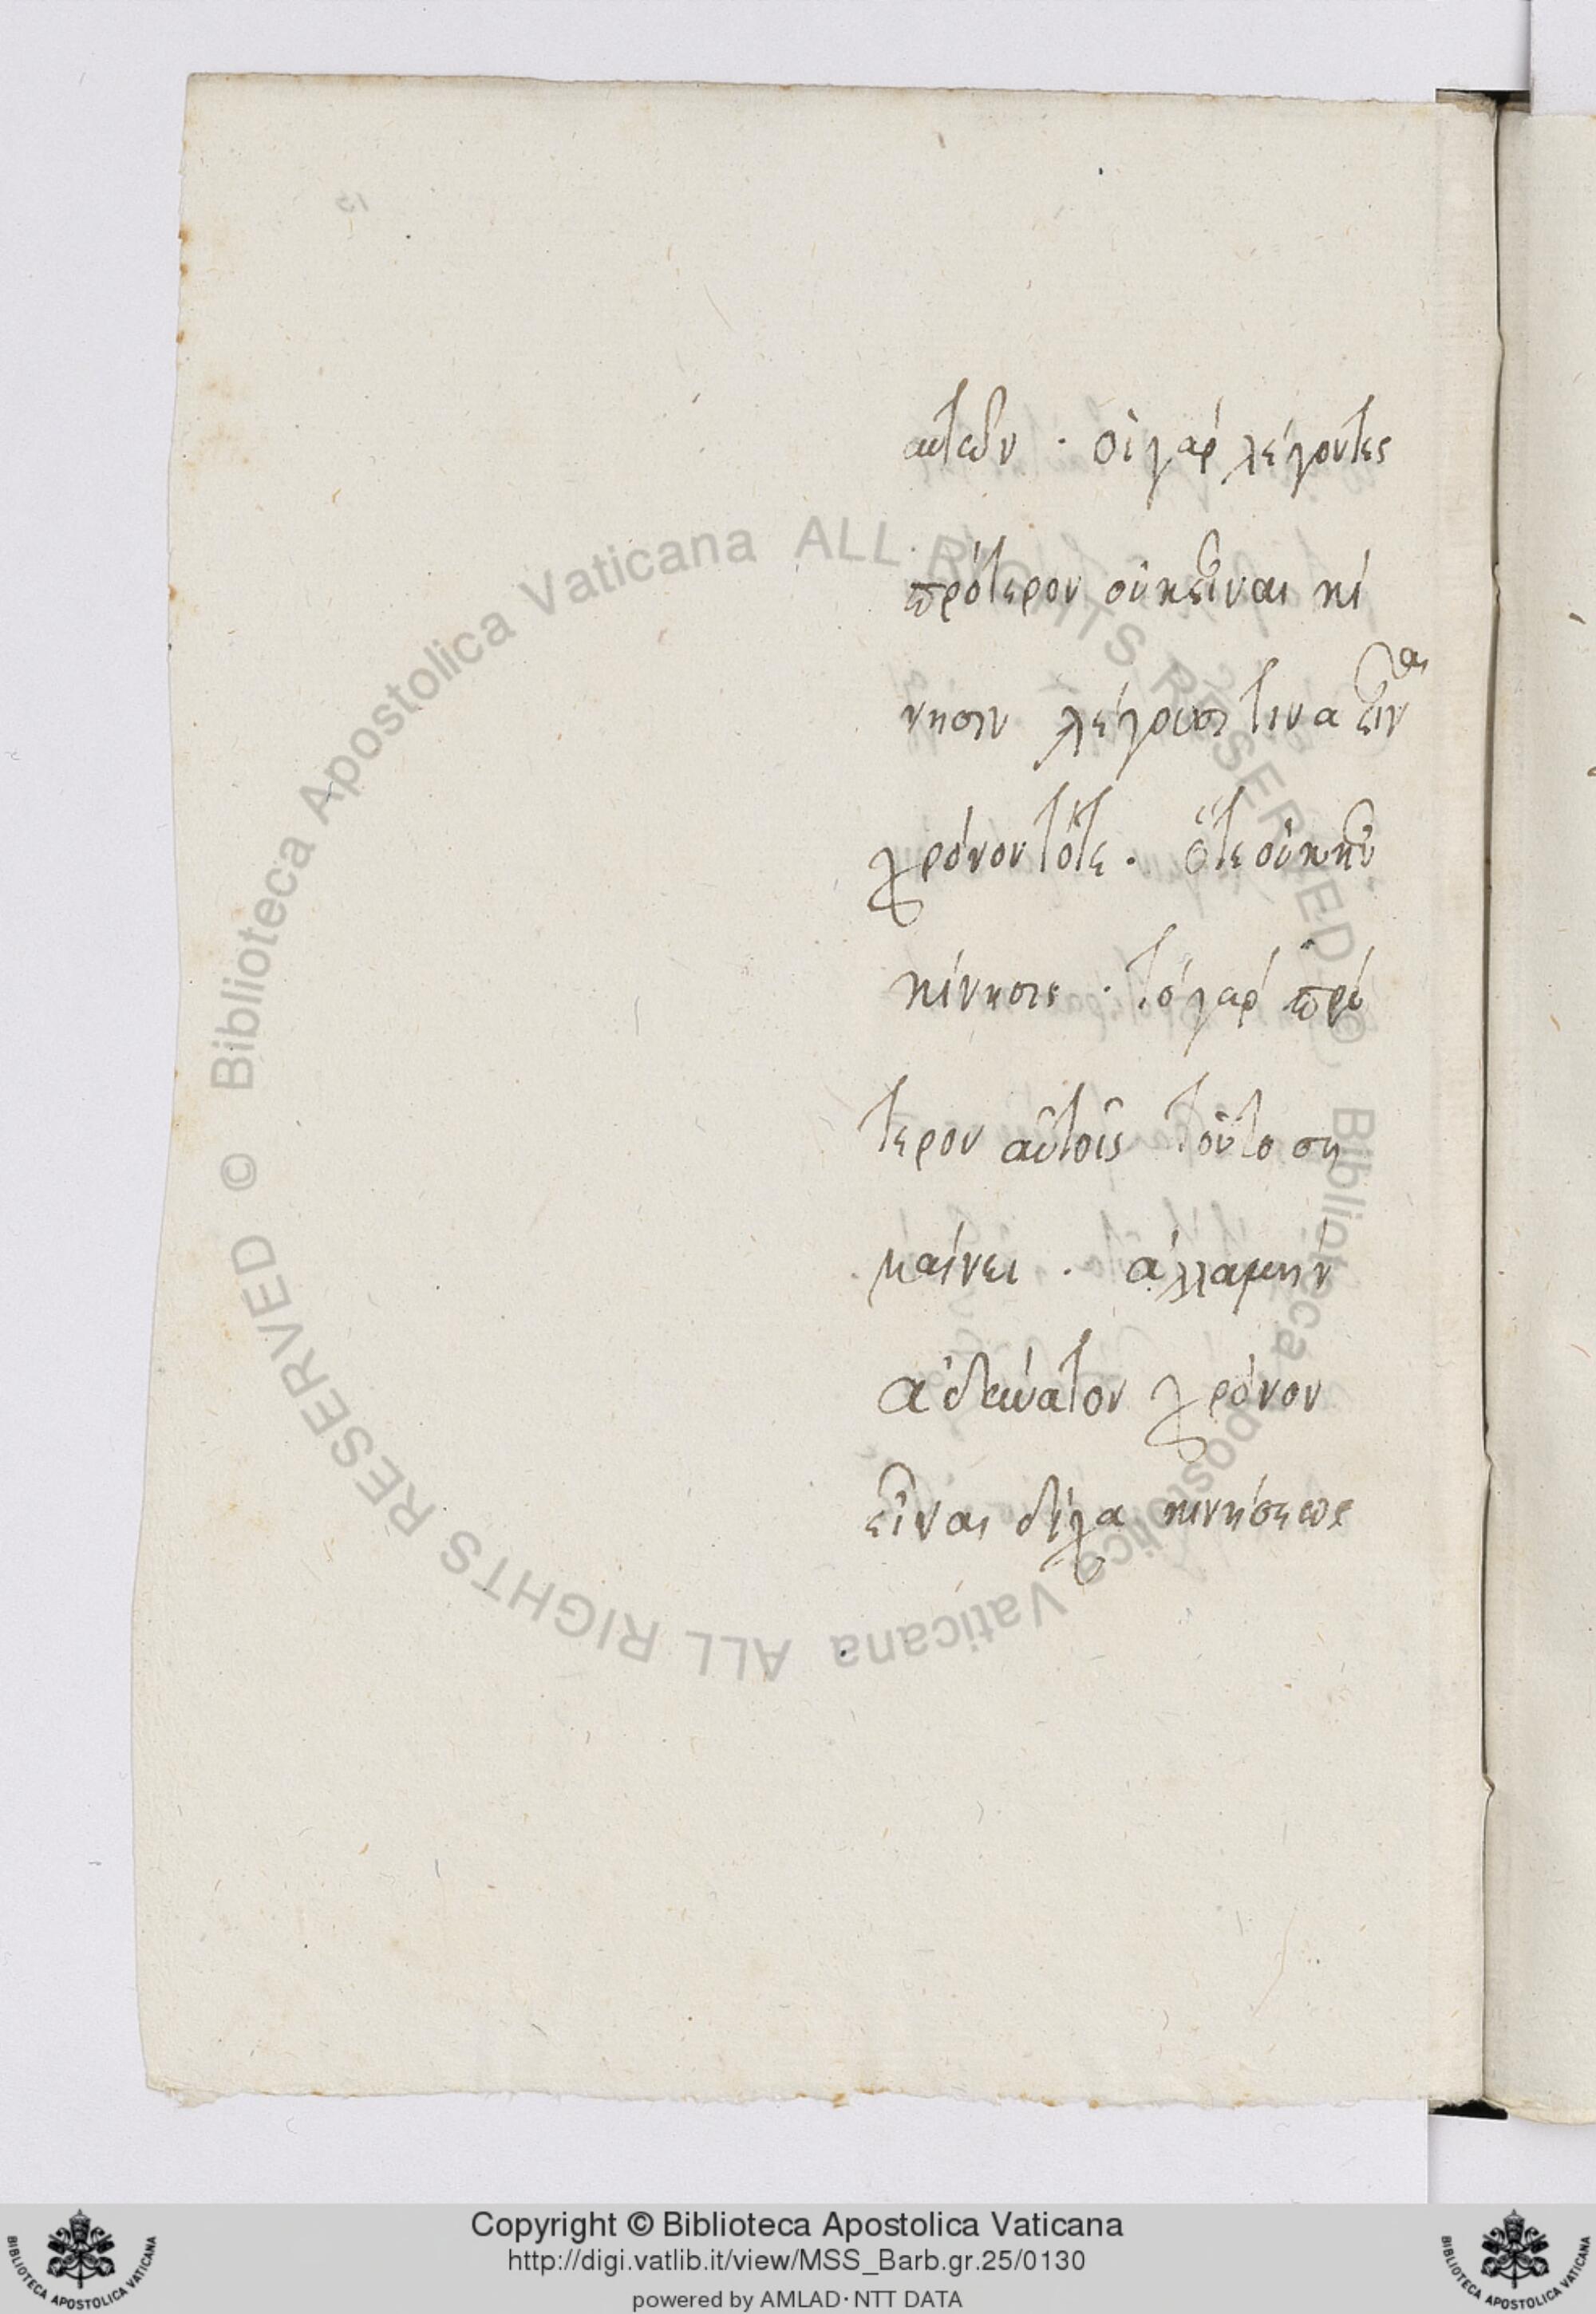 αυτῶν · οἱ γὰρ λέγοντες
πρότερον οὐκ εἶναι κί
νησιν λέγουσι τινα εἶναι
χρόνον τότε · ὅτε οὐκ ἦν
κίνησις · τὸ γὰρ πρό
τερον αὐτοῖς τοῦτο ση
μαίνει · ἀλλαμὴν
ἀδύνατον χρόνον
εἶναι δίχα κινήσεως
© Biblioteca Apostolica Vaticana ALL RIGHTS RESERVED © Biblioteca Apostolica Vaticana ALL RIGHTS RESERVED
Copyright © Biblioteca Apostolica Vaticana
http://digi.vatlib.it/view/MSS_Barb.gr.25/0130
powered by AMLAD·NTT DATA
BIBLIOTECA APOSTOLICA VATICANA
BIBLIOTECA APOSTOLICA VATICANA